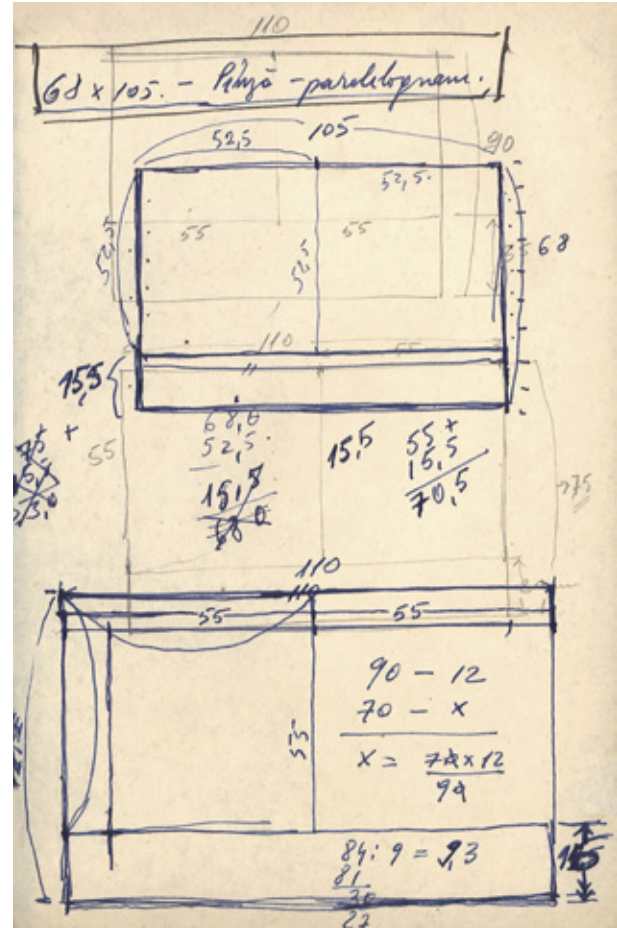 110
68 x 105. - Pînză - paralelogram.
105
52,5
90
52,5.
55
55
52,5
52,5
35 68
110
55
15,5
68,0
52,5.
15,5
15,5
55 +
15,5
70,5
55
75
110
110
55
55
90 - 12
70 - x
x = 7̶0̶ x 12
90
55
84 : 9 = 9,3
81
30
27